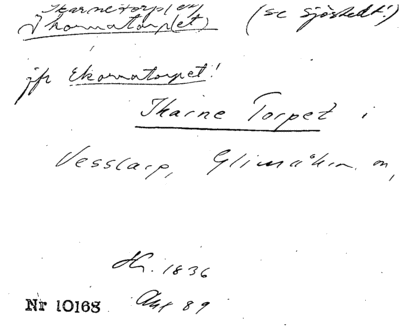 Ikarnetorpet
Ikornatorp(et) (se Sjöstedt!)
jfr Ekornatorpet!
Ikarne Torpet i
Vesslarp, Glimåkra sn,
Hf. 1836
Nr 10168 Akt 89